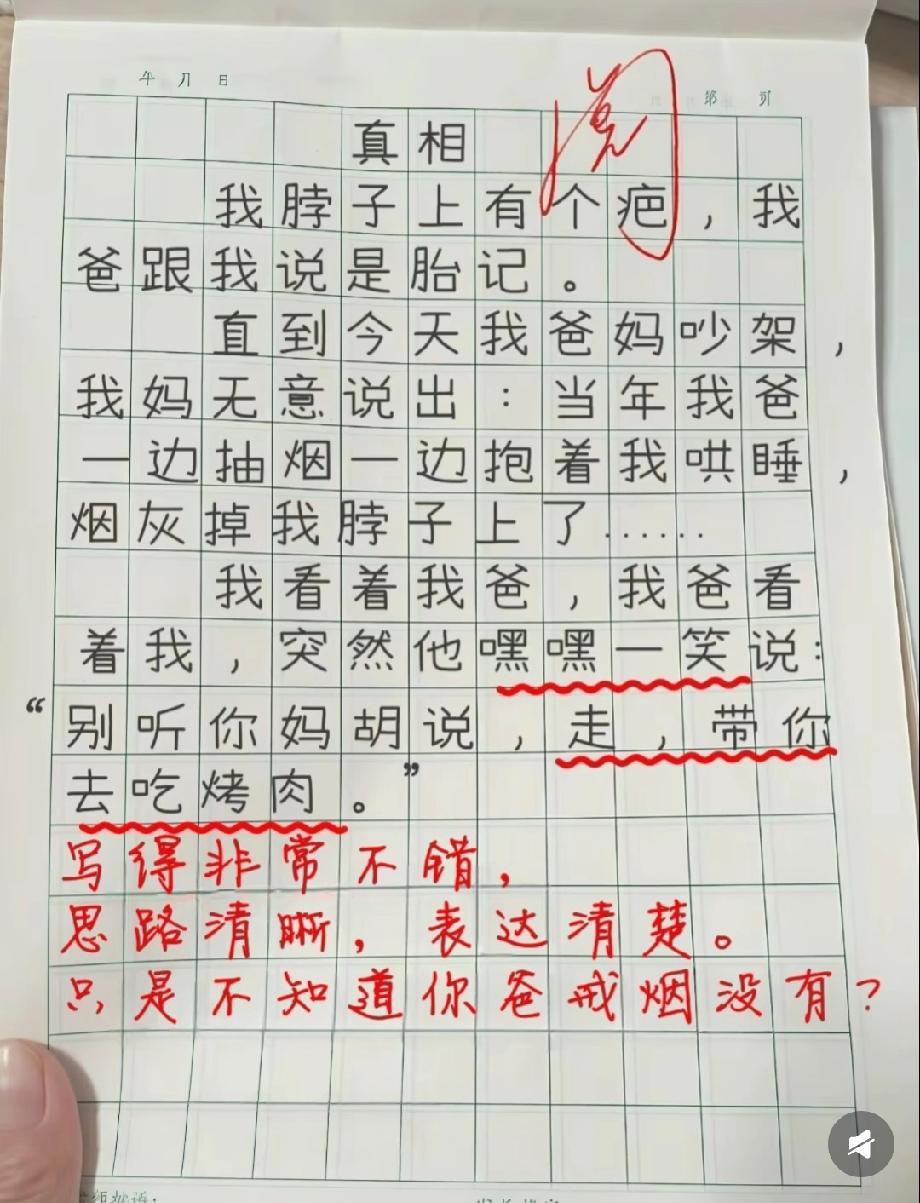 年 月 日
第 页
阅
真相
我脖子上有个疤，我
爸跟我说是胎记。
直到今天我爸妈吵架，
我妈无意说出：当年我爸
一边抽烟一边抱着我哄睡，
烟灰掉我脖子上了......
我看着我爸，我爸看
着我，突然他嘿嘿一笑说：
“别听你妈胡说，走，带你
去吃烤肉。”
写得非常不错，
思路清晰，表达清楚。
只是不知道你爸戒烟没有？